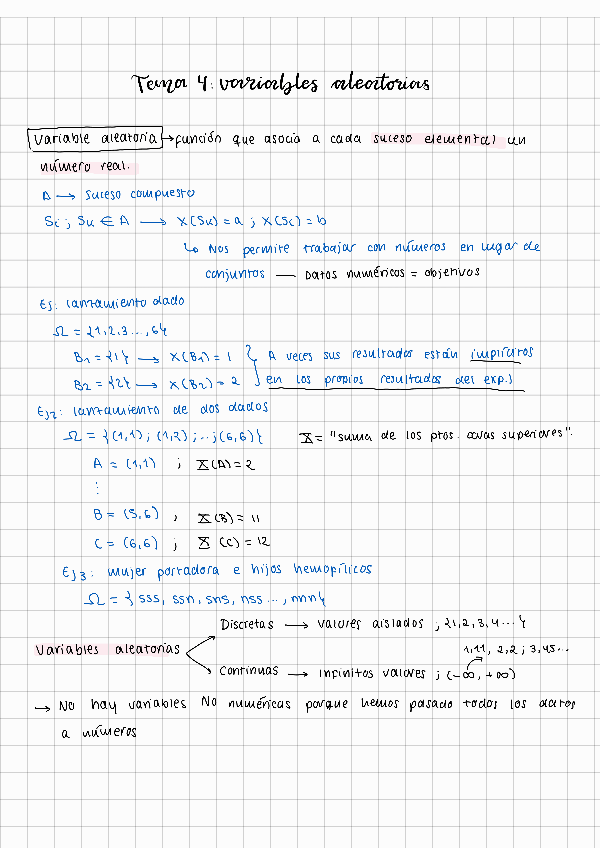 Tema 4: variables aleatorias
Variable aleatoria → función que asocia a cada suceso elemental un
número real.
A → suceso compuesto
Si ; Su ∈ A → X(Su) = a ; X(Si) = b
↳ Nos permite trabajar con números en lugar de
conjuntos — Datos numéricos = objetivos
Ej: lanzamiento dado
Ω = {1,2,3...,6}
B1 = {1} → X(B1) = 1
B2 = {2} → X(B2) = 2
A veces sus resultados están implícitos
en los propios resultados del exp.)
Ej2: lanzamiento de dos dados
Ω = {(1,1) ; (1,2) ; ...; (6,6)} X = "suma de los ptos. caras superiores".
A = (1,1) ; X(A) = 2
⋮
B = (5,6) , X(B) = 11
C = (6,6) ; X(C) = 12
Ej3: mujer portadora e hijos hemofílicos
Ω = {sss, ssn, sns, nss..., nnn}
Discretas → valores aislados ; {1,2,3,4...}
Variables aleatorias
1,11, 2,2 ; 3,45...
Continuas → Infinitos valores ; (-∞, +∞)
→ No hay variables No numéricas porque hemos pasado todos los datos
a números